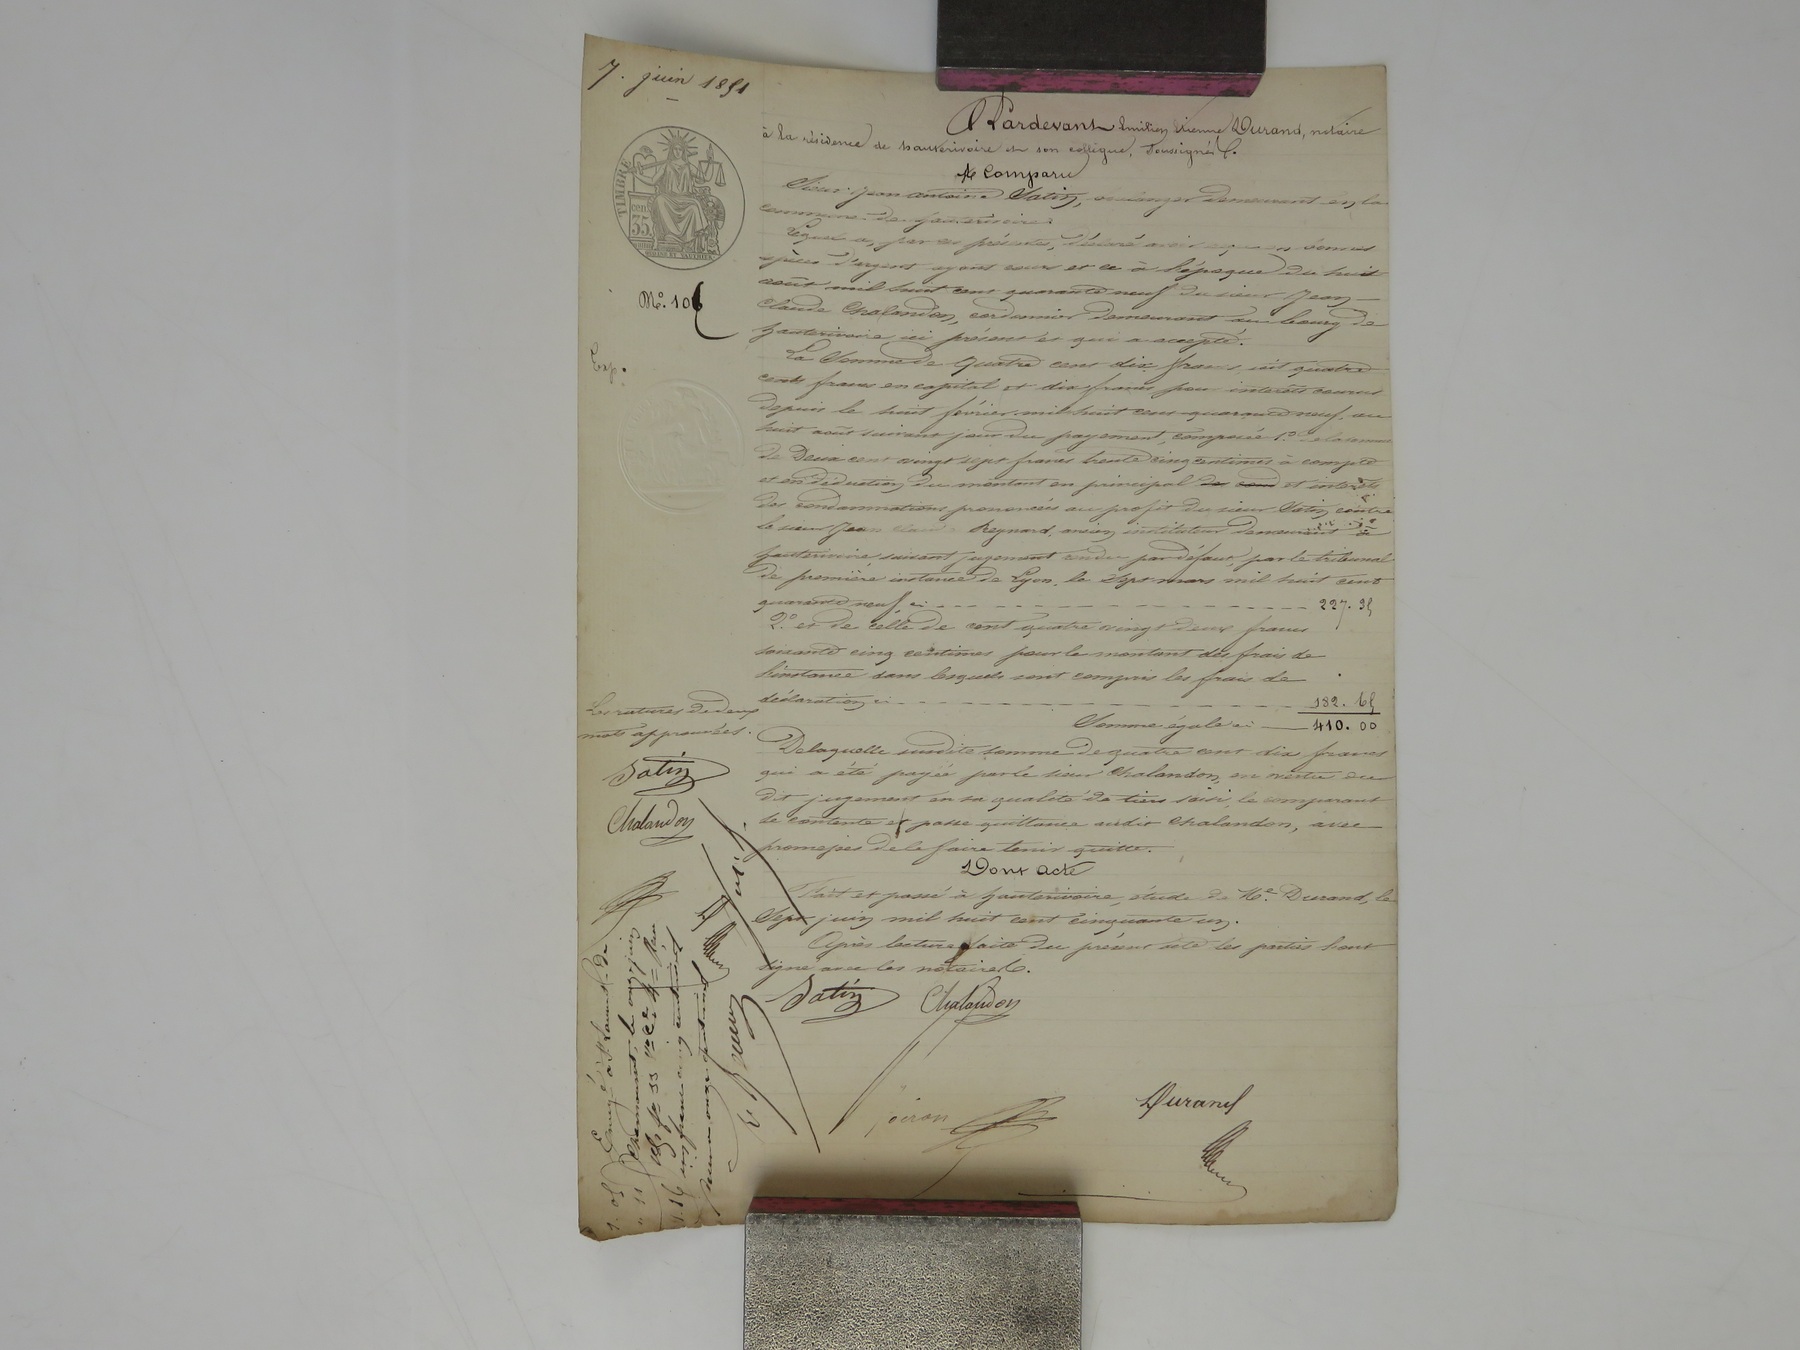 7. juin 1851
Pardevant Emilien Etienne Durand, notaire
à la résidence de hauterivoire et son collègue, Soussignés.
A Comparu
Sieur Jean Antoine Satin, demeurant en la
commune de hauterivoire.
Lequel a, par ces présentes, déclaré avoir reçu en bonnes
espèces d'argent ayant cours et ce à l'époque du huit
août mil huit cent quarante neuf du sieur Jean
Claude Chalandon, cordonnier demeurant au bourg de
hauterivoire, ici présent et qui a accepté.
La Somme de quatre cent dix francs, soit quatre
cents francs en capital et dix francs pour intérêts courus
depuis le huit février mil huit cent quarante neuf, au
huit août suivant jour du payement, composée 1º. de la somme
de Deux cent vingt sept francs trente cinq centimes à compte
et en déduction du montant en principal et intérêts
des condamnations prononcées au profit du sieur Satin contre
le sieur Jean Claude Reynard, ancien instituteur demeurant à
hauterivoire, suivant jugement rendu par défaut, par le tribunal
de première instance de Lyon, le sept mars mil huit cent
quarante neuf, ci 227. 35
2º. et de celle de cent quatre vingt deux francs
soixante cinq centimes pour le montant des frais de
l'instance dans lesquels sont compris les frais de
déclaration ci 182. 65
Somme égale ci 410. 00
Delaquelle susdite somme de quatre cent dix francs
qui a été payée par le sieur Chalandon, en vertu du
dit jugement en sa qualité de tiers saisi, le comparant
se contente et passe quittance audit Chalandon, avec
promesses de le faire tenir quitte.
Dont acte
Fait et passé à hauterivoire, étude de Me. Durand, le
Sept juin mil huit cent cinquante un.
Après lecture faite du présent acte les parties l'ont
signé avec les notaires.
Satin Chalandon
Durand
TIMBRE
cent
35
Nº. 106
Exp.
Les ratures de deux
mots approuvées.
Satin
Chalandon